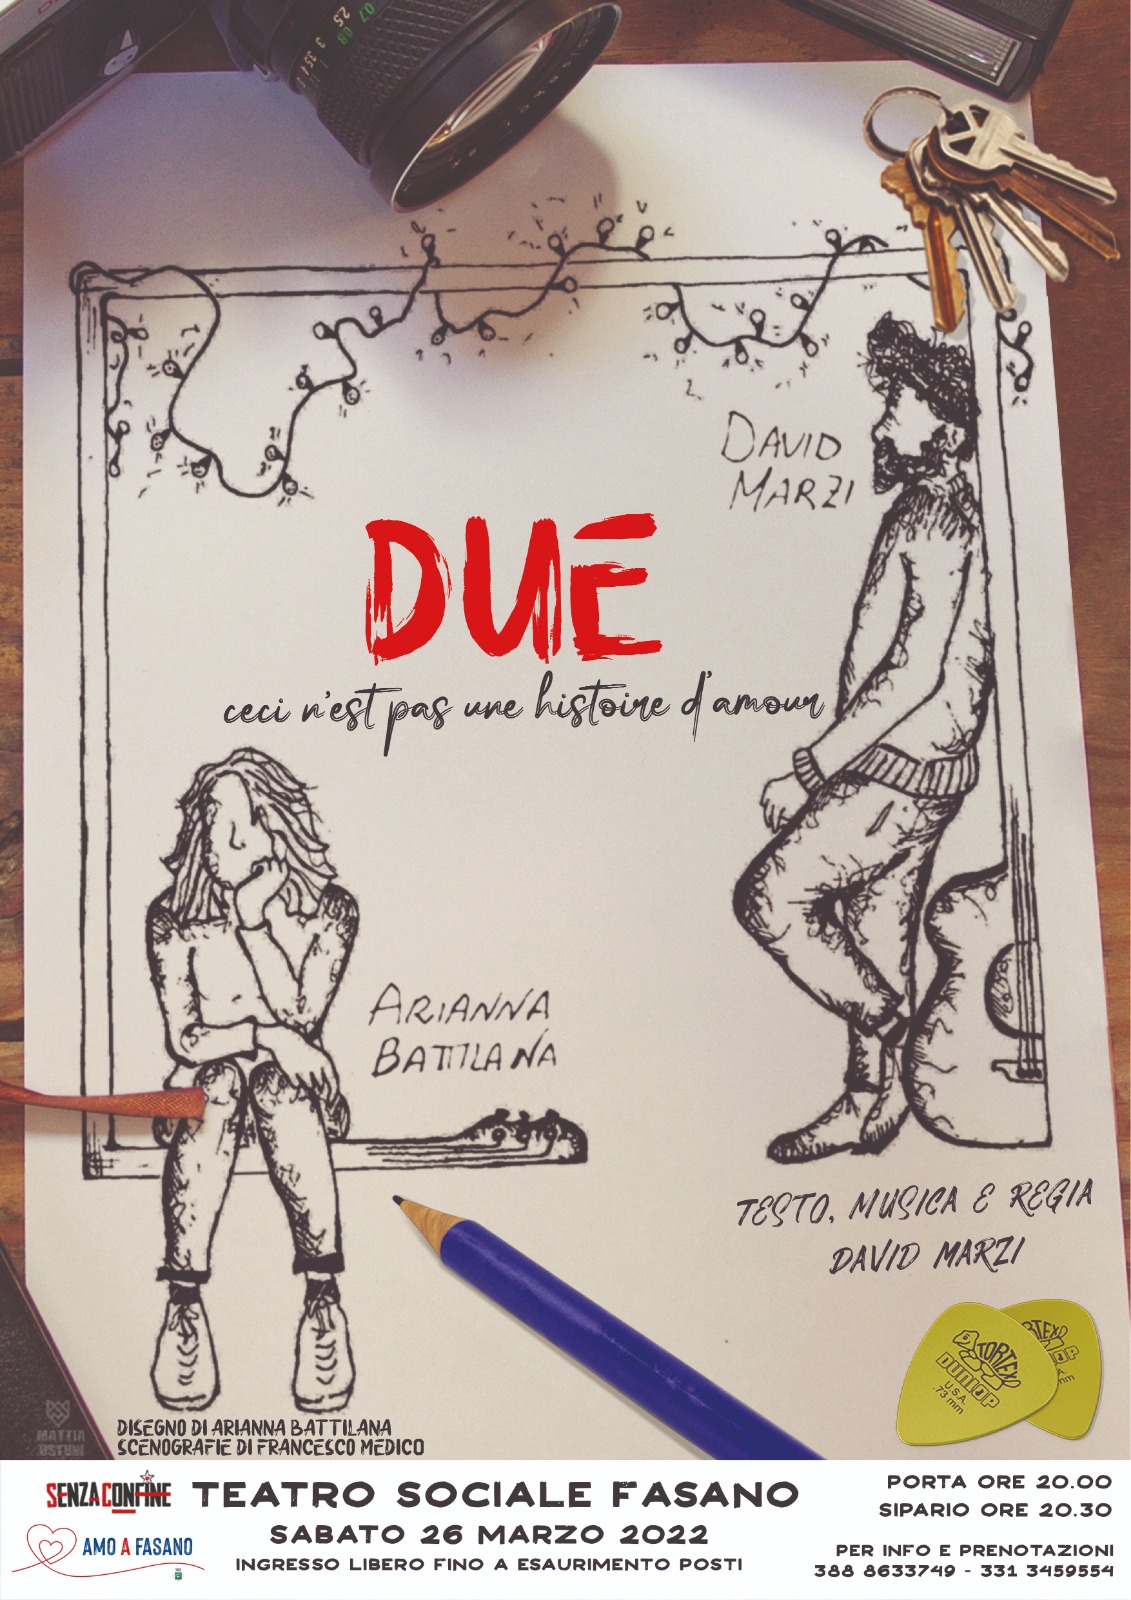 DAVID
MARZI
DUE
ceci n'est pas une histoire d'amour
ARIANNA
BATTILANA
TESTO, MUSICA E REGIA
DAVID MARZI
TORTEX
DUNLOP
U.S.A.
.73 mm
DISEGNO DI ARIANNA BATTILANA
SCENOGRAFIE DI FRANCESCO MEDICO
MATTIA
OSTUNI
SENZACONFINE
AMO A FASANO
TEATRO SOCIALE FASANO
SABATO 26 MARZO 2022
INGRESSO LIBERO FINO A ESAURIMENTO POSTI
PORTA ORE 20.00
SIPARIO ORE 20.30
PER INFO E PRENOTAZIONI
388 8633749 - 331 3459554